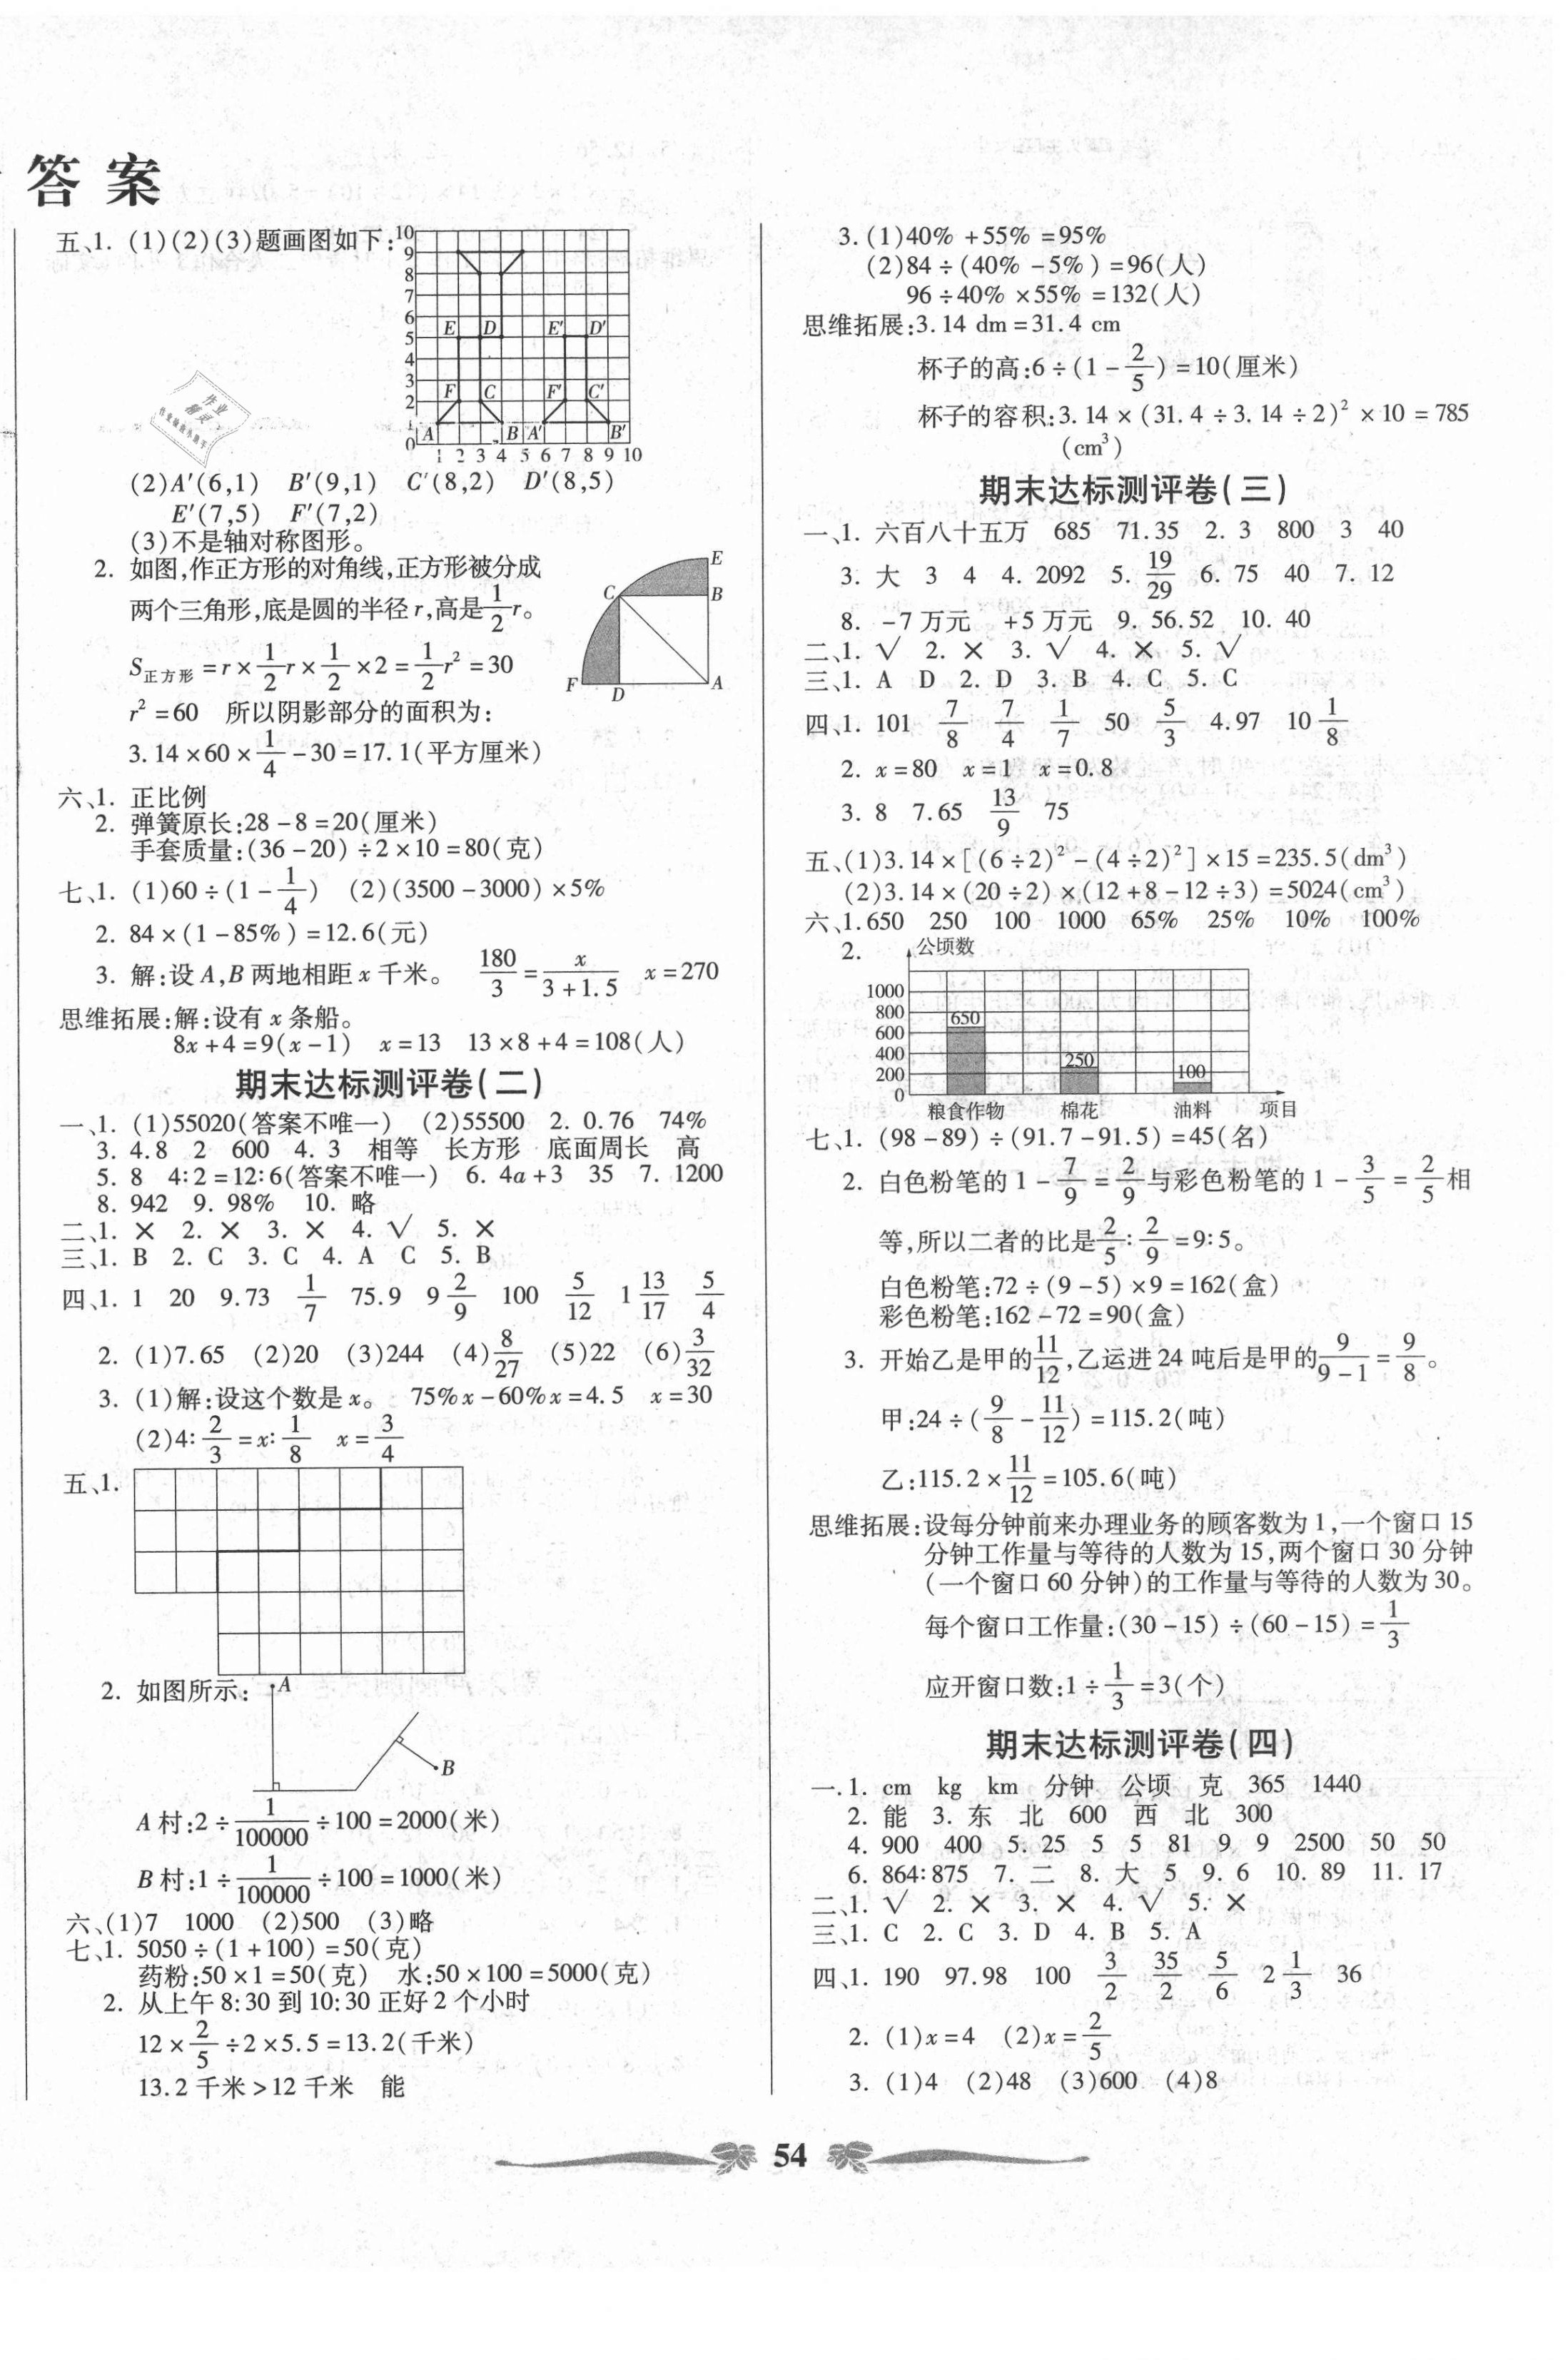 答案
五、1. (1)(2)(3)题画图如下:
10
9
8
7
6
5
4
3
2
1
0
E D E′ D′
F C F′ C′
A B A′ B′
1 2 3 4 5 6 7 8 9 10
(2)A′(6,1) B′(9,1) C′(8,2) D′(8,5)
E′(7,5) F′(7,2)
(3)不是轴对称图形。
2. 如图,作正方形的对角线,正方形被分成
两个三角形,底是圆的半径r,高是1/2r。
S正方形=r×1/2r×1/2×2=1/2r²=30
r²=60 所以阴影部分的面积为:
3.14×60×1/4-30=17.1(平方厘米)
E
C B
F D A
六、1. 正比例
2. 弹簧原长:28-8=20(厘米)
手套质量:(36-20)÷2×10=80(克)
七、1. (1)60÷(1-1/4) (2)(3500-3000)×5%
2. 84×(1-85%)=12.6(元)
3. 解:设A,B两地相距x千米。 180/3=x/(3+1.5) x=270
思维拓展:解:设有x条船。
8x+4=9(x-1) x=13 13×8+4=108(人)
期末达标测评卷(二)
一、1. (1)55020(答案不唯一) (2)55500 2. 0.76 74%
3. 4.8 2 600 4. 3 相等 长方形 底面周长 高
5. 8 4∶2=12∶6(答案不唯一) 6. 4a+3 35 7. 1200
8. 942 9. 98% 10. 略
二、1. × 2. × 3. × 4. √ 5. ×
三、1. B 2. C 3. C 4. A C 5. B
四、1. 1 20 9.73 1/7 75.9 9 2/9 100 5/12 1 13/17 5/4
2. (1)7.65 (2)20 (3)244 (4)8/27 (5)22 (6)3/32
3. (1)解:设这个数是x。 75%x-60%x=4.5 x=30
(2)4∶2/3=x∶1/8 x=3/4
五、1.
2. 如图所示:
A
B
A村:2÷1/100000÷100=2000(米)
B村:1÷1/100000÷100=1000(米)
六、(1)7 1000 (2)500 (3)略
七、1. 5050÷(1+100)=50(克)
药粉:50×1=50(克) 水:50×100=5000(克)
2. 从上午8:30到10:30正好2个小时
12×2/5÷2×5.5=13.2(千米)
13.2千米>12千米 能
3. (1)40%+55%=95%
(2)84÷(40%-5%)=96(人)
96÷40%×55%=132(人)
思维拓展:3.14 dm=31.4 cm
杯子的高:6÷(1-2/5)=10(厘米)
杯子的容积:3.14×(31.4÷3.14÷2)²×10=785
(cm³)
期末达标测评卷(三)
一、1. 六百八十五万 685 71.35 2. 3 800 3 40
3. 大 3 4 4. 2092 5. 19/29 6. 75 40 7. 12
8. -7万元 +5万元 9. 56.52 10. 40
二、1. √ 2. × 3. √ 4. × 5. √
三、1. A D 2. D 3. B 4. C 5. C
四、1. 101 7/8 7/4 1/7 50 5/3 4.97 10 1/8
2. x=80 x=1 x=0.8
3. 8 7.65 13/9 75
五、(1)3.14×[(6÷2)²-(4÷2)²]×15=235.5(dm³)
(2)3.14×(20÷2)×(12+8-12÷3)=5024(cm³)
六、1.650 250 100 1000 65% 25% 10% 100%
2.
公顷数
1000
800
600
400
200
0
650
250
100
粮食作物 棉花 油料 项目
七、1. (98-89)÷(91.7-91.5)=45(名)
2. 白色粉笔的1-7/9=2/9与彩色粉笔的1-3/5=2/5相
等,所以二者的比是2/5∶2/9=9∶5。
白色粉笔:72÷(9-5)×9=162(盒)
彩色粉笔:162-72=90(盒)
3. 开始乙是甲的11/12,乙运进24吨后是甲的9/(9-1)=9/8。
甲:24÷(9/8-11/12)=115.2(吨)
乙:115.2×11/12=105.6(吨)
思维拓展:设每分钟前来办理业务的顾客数为1,一个窗口15
分钟工作量与等待的人数为15,两个窗口30分钟
(一个窗口60分钟)的工作量与等待的人数为30。
每个窗口工作量:(30-15)÷(60-15)=1/3
应开窗口数:1÷1/3=3(个)
期末达标测评卷(四)
一.1. cm kg km 分钟 公顷 克 365 1440
2. 能 3. 东 北 600 西 北 300
4. 900 400 5. 25 5 5 81 9 9 2500 50 50
6. 864∶875 7. 二 8. 大 5 9. 6 10. 89 11. 17
二、1. √ 2. × 3. × 4. √ 5. ×
三、1. C 2. C 3. D 4. B 5. A
四、1. 190 97.98 100 3/2 35/2 5/6 2 1/3 36
2. (1)x=4 (2)x=2/5
3. (1)4 (2)48 (3)600 (4)8
54